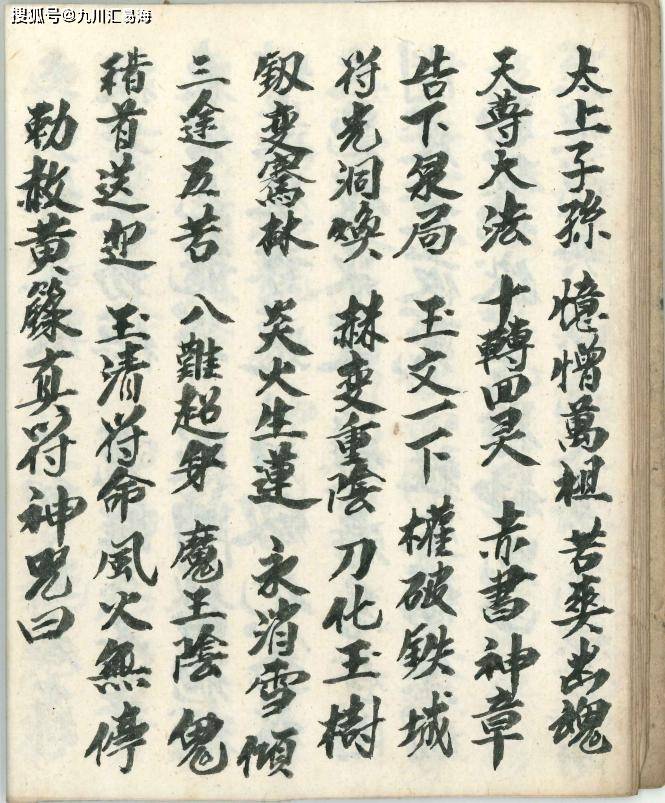 搜狐号@九川汇易海
太上子孫 憶憎萬祖 苦爽出魂
天尊大法 十轉回灵 赤書神章
告下泉局 玉文一下 權破铁城
符光洞喚 赫变重陰 刀化玉樹
釼变騫林 炎火生蓮 永消雪傾
三途五苦 八難超身 魔王陰鬼
稽首送迎 玉清符命 風火無停
勅赦黄籙真符神咒曰